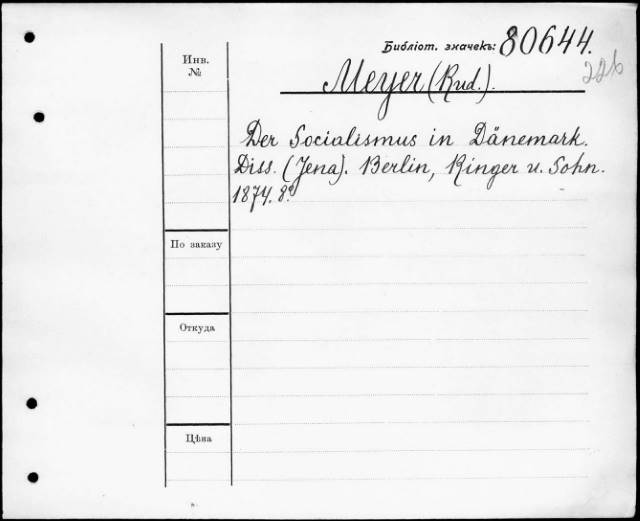 Библіот. значекъ: 80644.
226
Инв.
№
Meyer (Rud.).
Der Socialismus in Dänemark.
Diss. (Jena). Berlin, Ringer u. Sohn.
1874. 8º
По заказу
Откуда
Цѣна